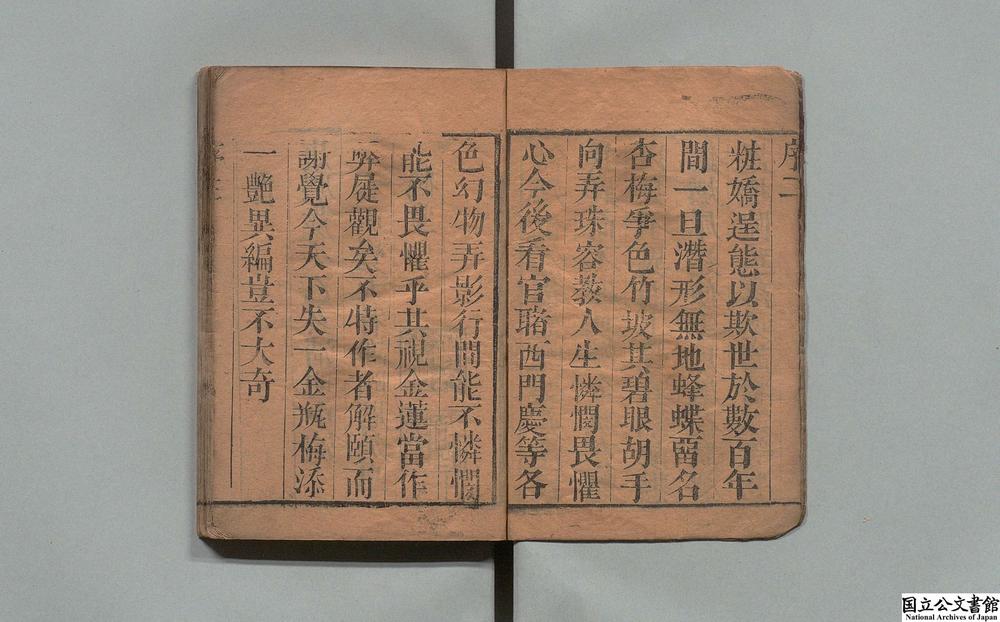 序二
粧嬌逞態以欺世於數百年
間一旦潛形無地蜂蝶畱名
杏梅爭色竹坡其碧眼胡手
向弄珠容教人生憐憫畏懼
心今後看官睹西門慶等各
色幻物弄影行間能不憐憫
能不畏懼乎其視金蓮當作
弊屣觀矣不特作者解頤而
謝覺今天下失一金瓶梅添
一艷異編豈不大奇
国立公文書館
National Archives of Japan